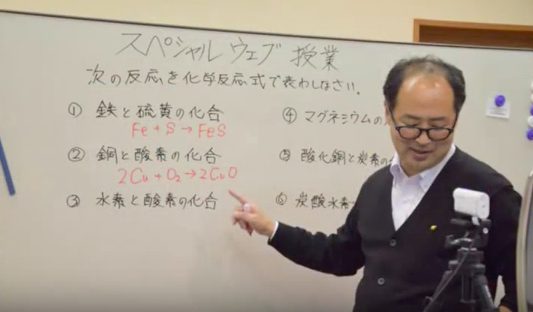 スペシャルウェブ授業
次の反応を化学反応式で表わしなさい.
① 鉄と硫黄の化合
Fe + S → FeS
② 銅と酸素の化合
2Cu + O₂ → 2CuO
③ 水素と酸素の化合
④ マグネシウムの
⑤ 酸化銅と炭素の
⑥ 炭酸水素